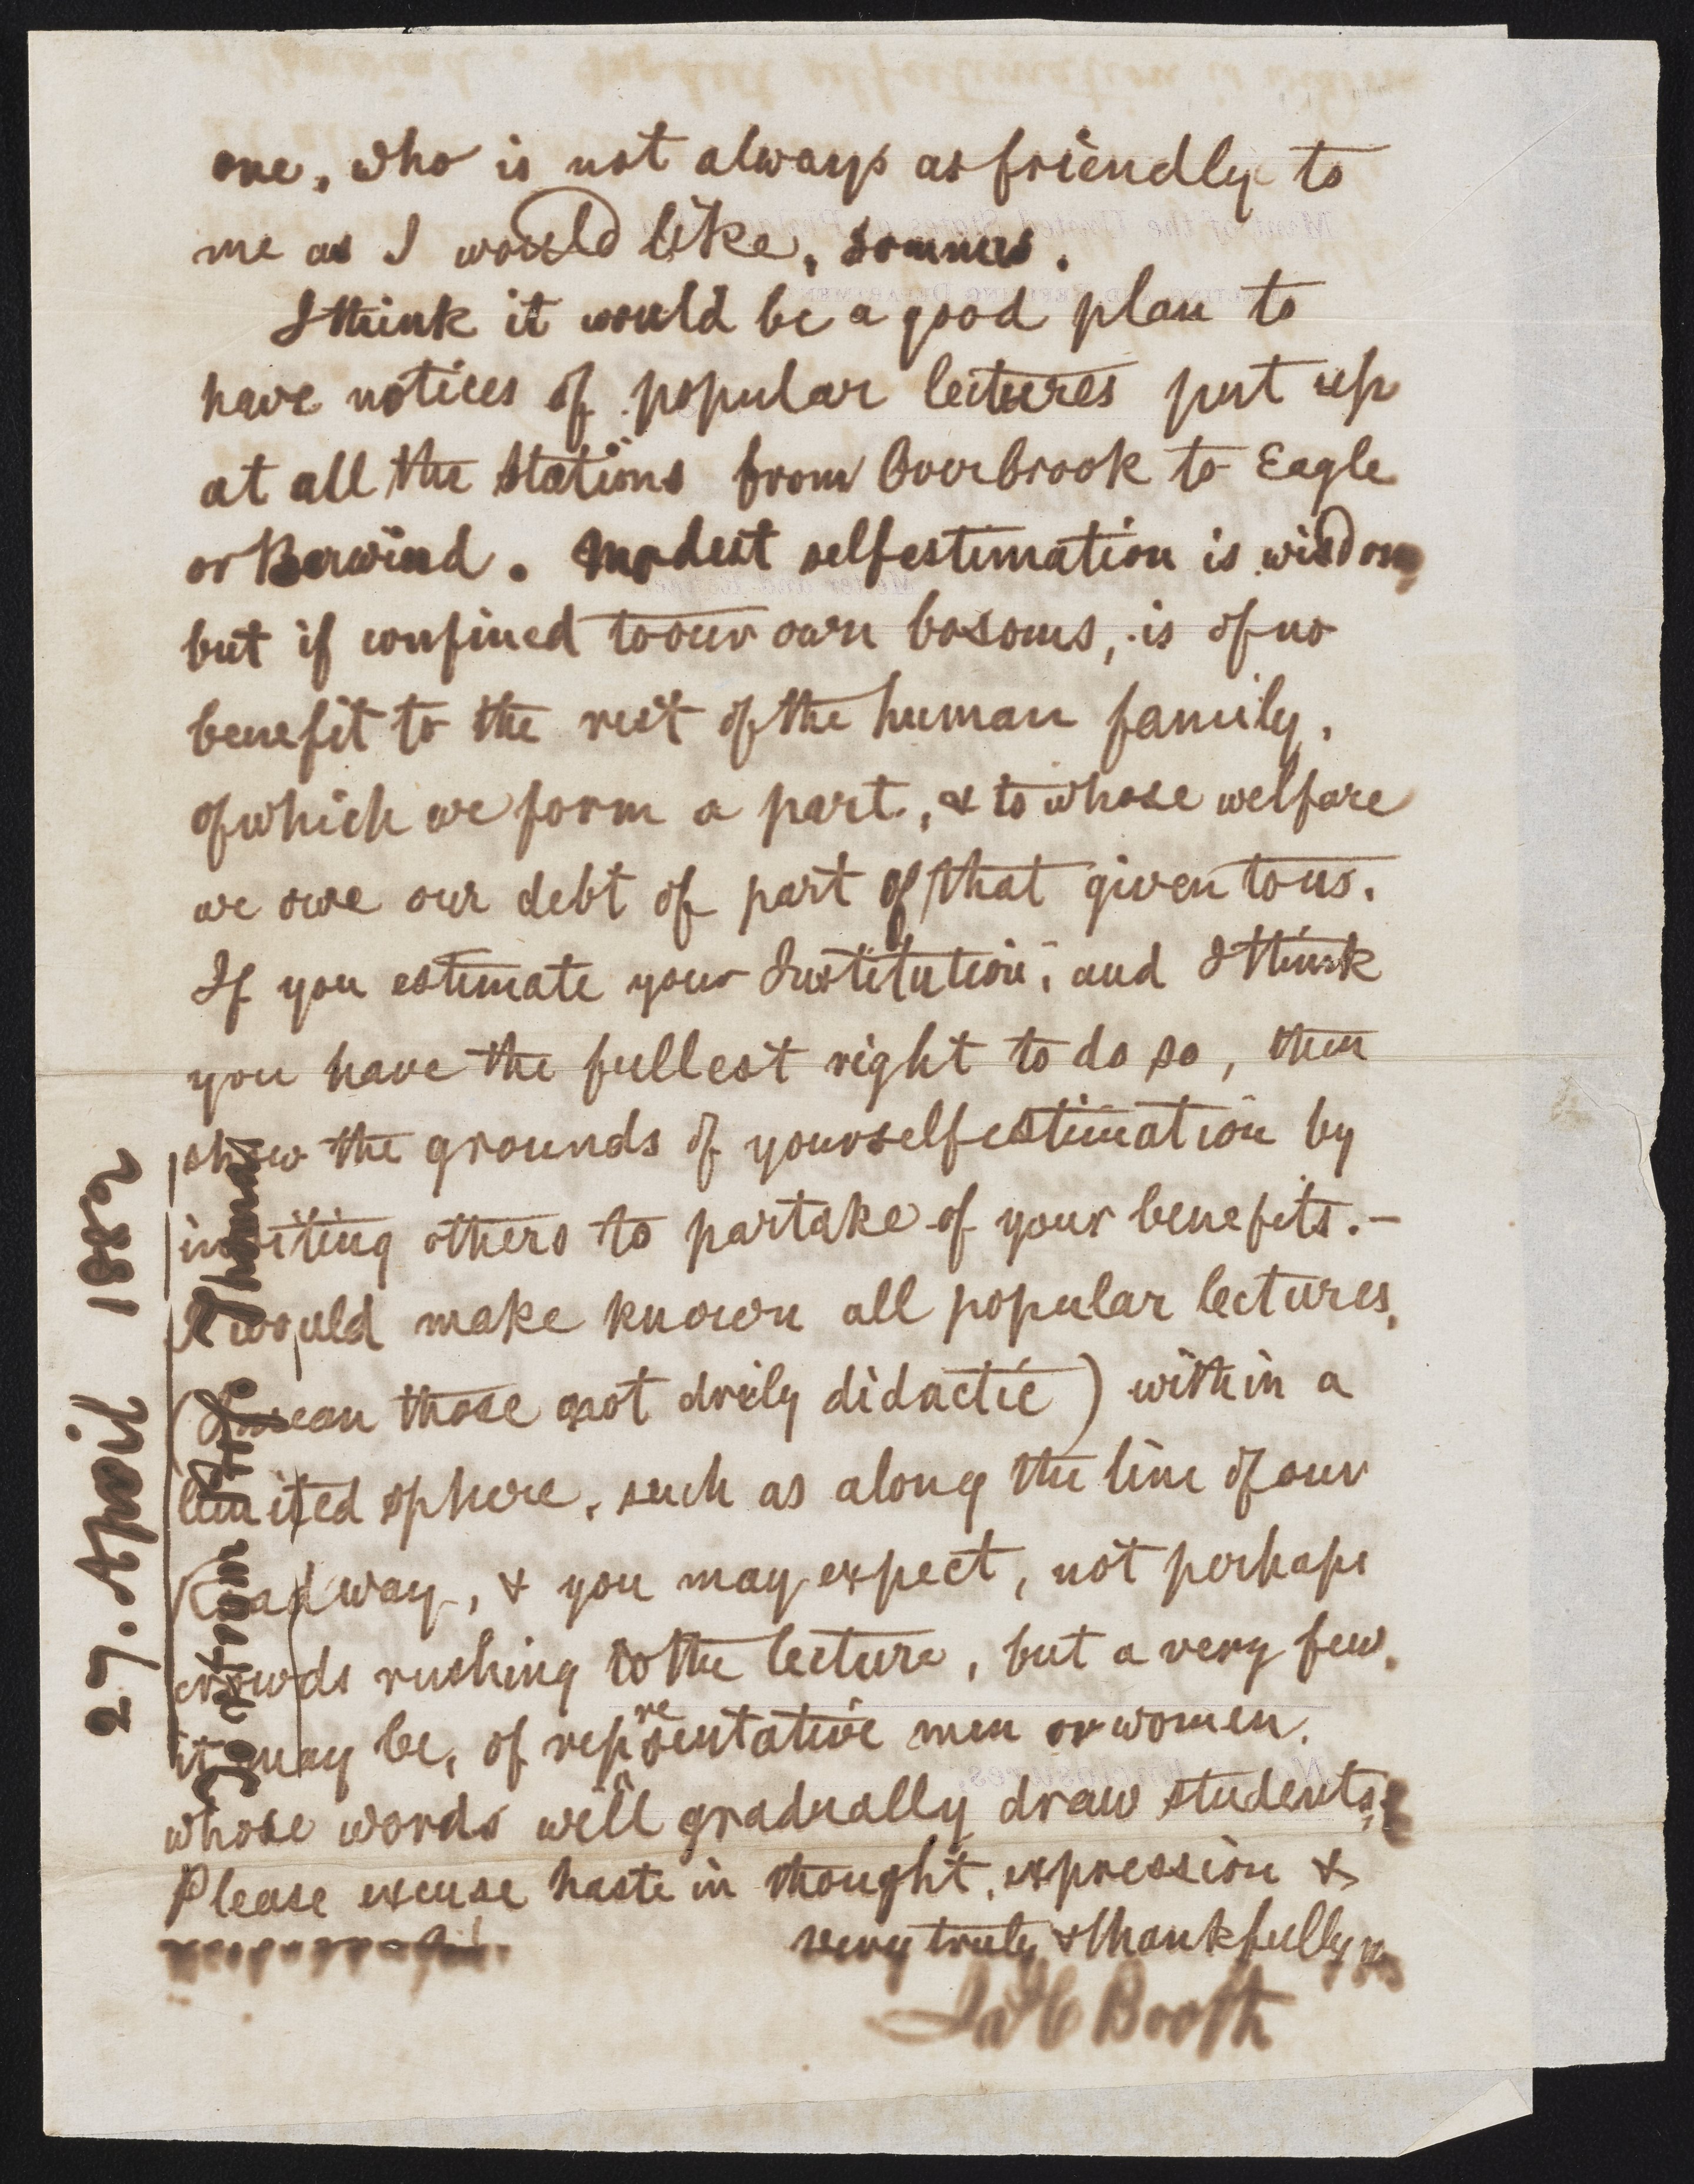 one, who is not always as friendly to
me as I would like, somnus.
I think it would be a good plan to
have notices of popular lectures put up
at all the stations from Overbrook to Eagle
or Berwind. Modest selfestimation is wisdom,
but if confined to our own bosoms, is of no
benefit to the rest of the human family,
of which we form a part, & to whose welfare
we owe our debt of part of that given to us.
If you estimate your Institution, and I think
you have the fullest right to do so, then
show the grounds of your selfestimation by
inviting others to partake of your benefits. –
I would make known all popular lectures,
(I mean those not drily didactic) within a
limited sphere, such as along the line of our
Roadway, & you may expect, not perhaps
crowds rushing to the lecture, but a very few,
it may be, of representative men or women,
whose words will gradually draw students.
Please excuse haste in thought, expression &
very truly & thankfully yrs
Jas C Booth
27. April 1882
Thomas